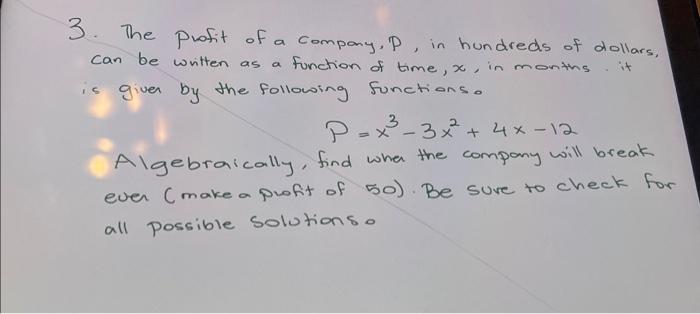 3. The profit of a company, P, in hundreds of dollars,
can be written as a function of time, x, in months. it
is given by the following functions.
P = x³ - 3x² + 4x - 12
Algebraically, find when the company will break
even (make a profit of $0). Be sure to check for
all possible solutions.